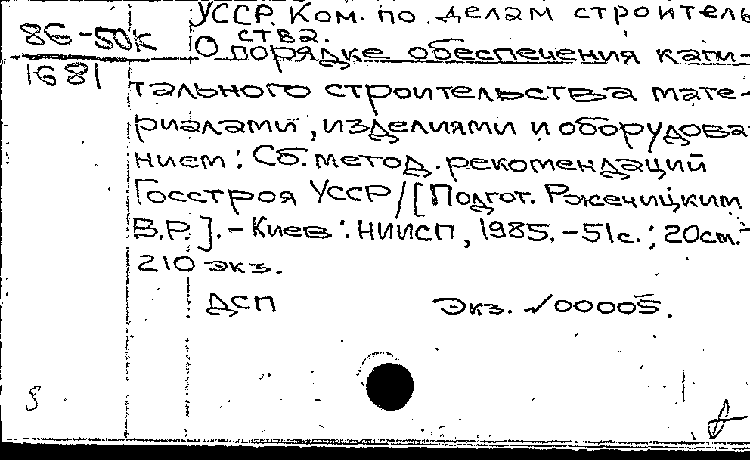 УССР. Ком. по делам строитель-
ства.
86-50к
1681
О порядке обеспечения капи-
тального строительства мате-
риалами, изделиями и оборудова-
нием: Сб. метод. рекомендаций
Госстроя УССР/[Подгот. Ржечицким
В.Р.]. - Киев: НИИСП, 1985. - 51с.; 20см. -
210 экз.
ДСП Экз. №00005.